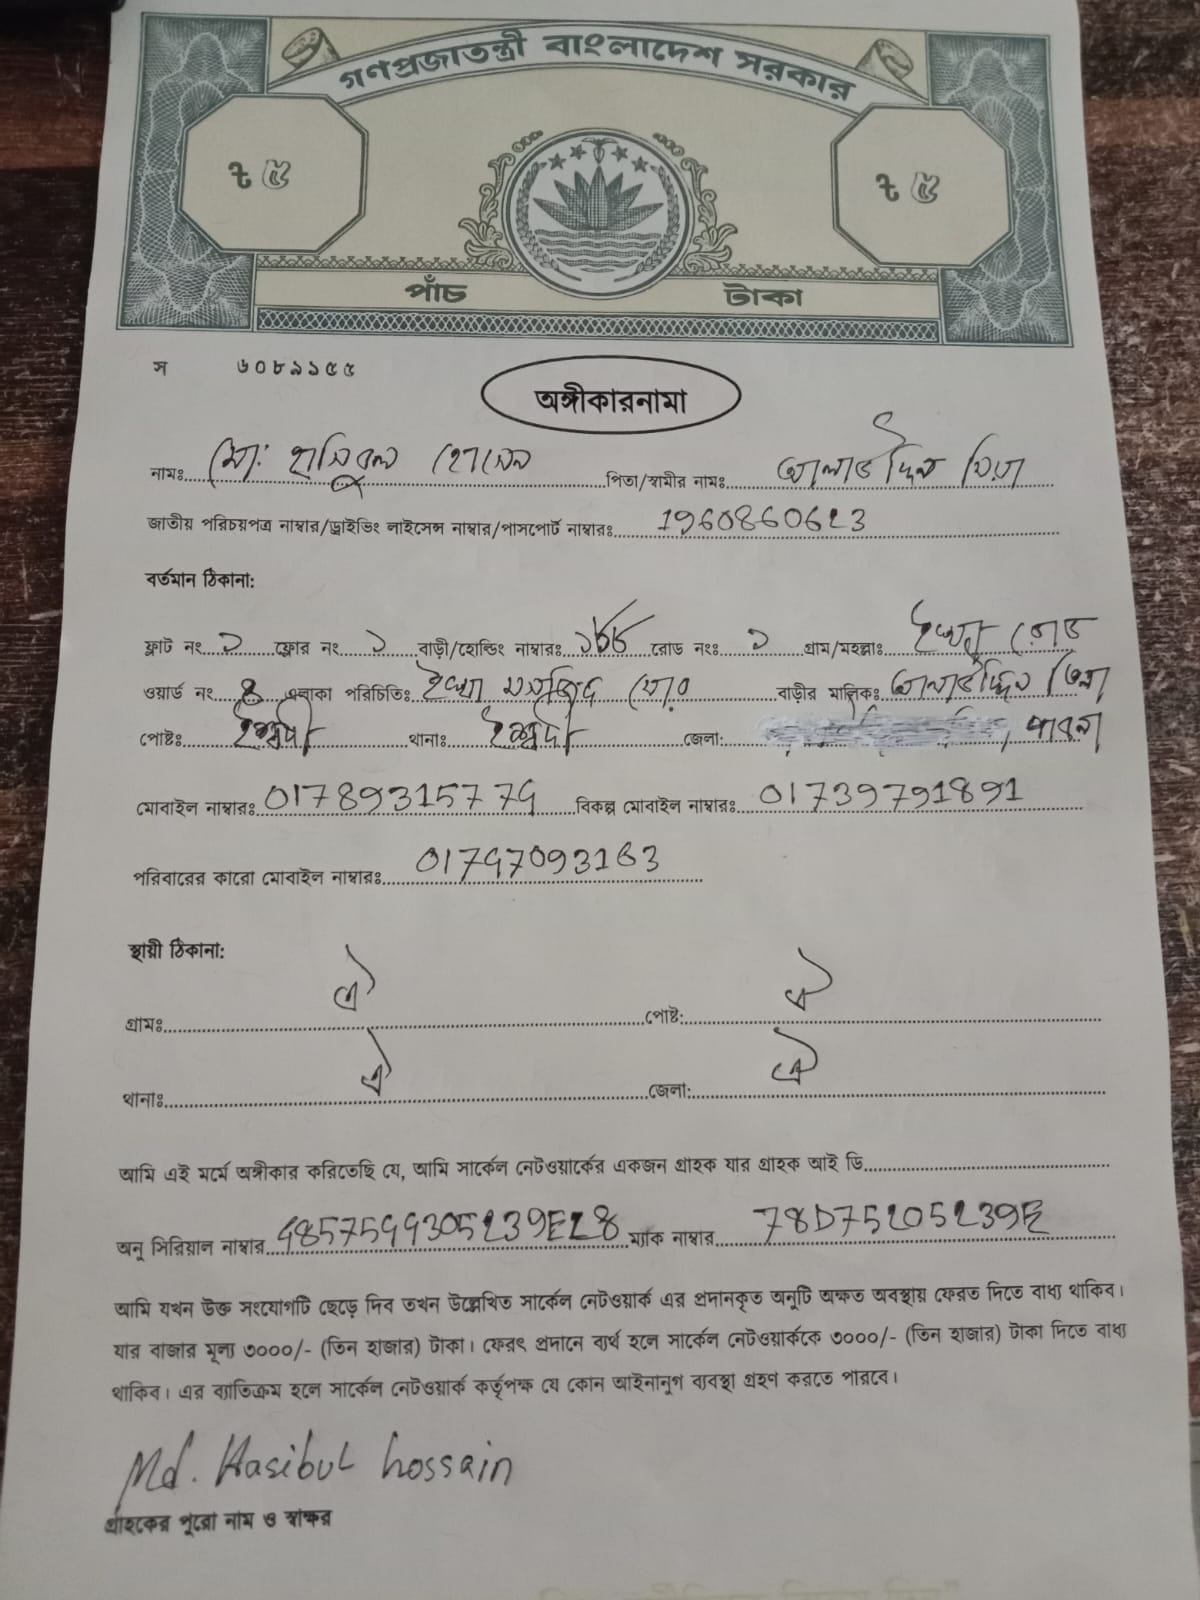 গণপ্রজাতন্ত্রী বাংলাদেশ সরকার
৳ ৫ ৳ ৫
পাঁচ টাকা
স ৬০৮৯১৫৫
অঙ্গীকারনামা
নামঃ মোঃ হাসিবুল হোসেন পিতা/স্বামীর নামঃ আলাউদ্দিন মিয়া
জাতীয় পরিচয়পত্র নাম্বার/ড্রাইভিং লাইসেন্স নাম্বার/পাসপোর্ট নাম্বারঃ 1960860623
বর্তমান ঠিকানা:
ফ্লাট নং ১ ফ্লোর নং ১ বাড়ী/হোল্ডিং নাম্বারঃ ১৮৮ রোড নংঃ ১ গ্রাম/মহল্লাঃ রোড
ওয়ার্ড নং 4 এলাকা পরিচিতিঃ মসজিদ মোড় বাড়ীর মালিকঃ আলাউদ্দিন মিয়া
পোষ্টঃ ঈশ্বরদী থানাঃ ঈশ্বরদী জেলা: পাবনা
মোবাইল নাম্বারঃ 01789315774 বিকল্প মোবাইল নাম্বারঃ 01739791891
পরিবারের কারো মোবাইল নাম্বারঃ 01747093163
স্থায়ী ঠিকানা:
গ্রামঃ ঐ পোষ্ট: ঐ
থানাঃ ঐ জেলা: ঐ
আমি এই মর্মে অঙ্গীকার করিতেছি যে, আমি সার্কেল নেটওয়ার্কের একজন গ্রাহক যার গ্রাহক আই ডি
অনু সিরিয়াল নাম্বার 4857544305239E28 ম্যাক নাম্বার 78D75205239E
আমি যখন উক্ত সংযোগটি ছেড়ে দিব তখন উল্লেখিত সার্কেল নেটওয়ার্ক এর প্রদানকৃত অনুটি অক্ষত অবস্থায় ফেরত দিতে বাধ্য থাকিব।
যার বাজার মূল্য ৩০০০/- (তিন হাজার) টাকা। ফেরৎ প্রদানে ব্যর্থ হলে সার্কেল নেটওয়ার্ককে ৩০০০/- (তিন হাজার) টাকা দিতে বাধ্য
থাকিব। এর ব্যাতিক্রম হলে সার্কেল নেটওয়ার্ক কর্তৃপক্ষ যে কোন আইনানুগ ব্যবস্থা গ্রহণ করতে পারবে।
Md. Hasibul hossain
গ্রাহকের পুরো নাম ও স্বাক্ষর